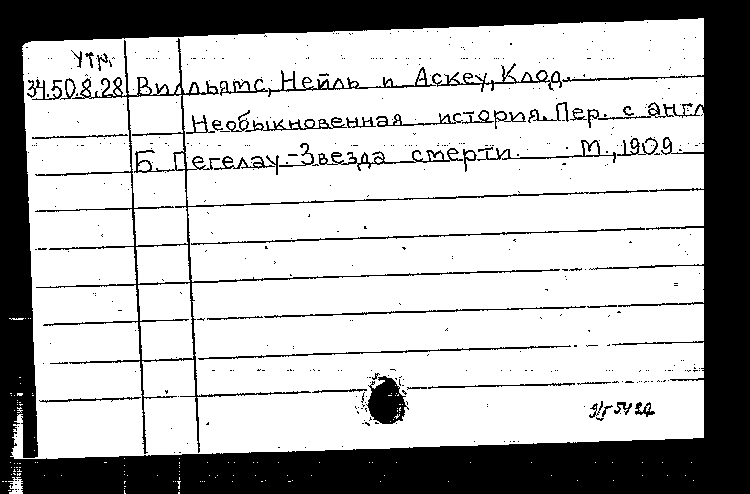 Утр.
34.50.8.28 Вилльямс, Нейль и Аскеу, Клод.
Необыкновенная история. Пер. с англ
Б. Пегелау.-Звезда смерти. М., 1909.